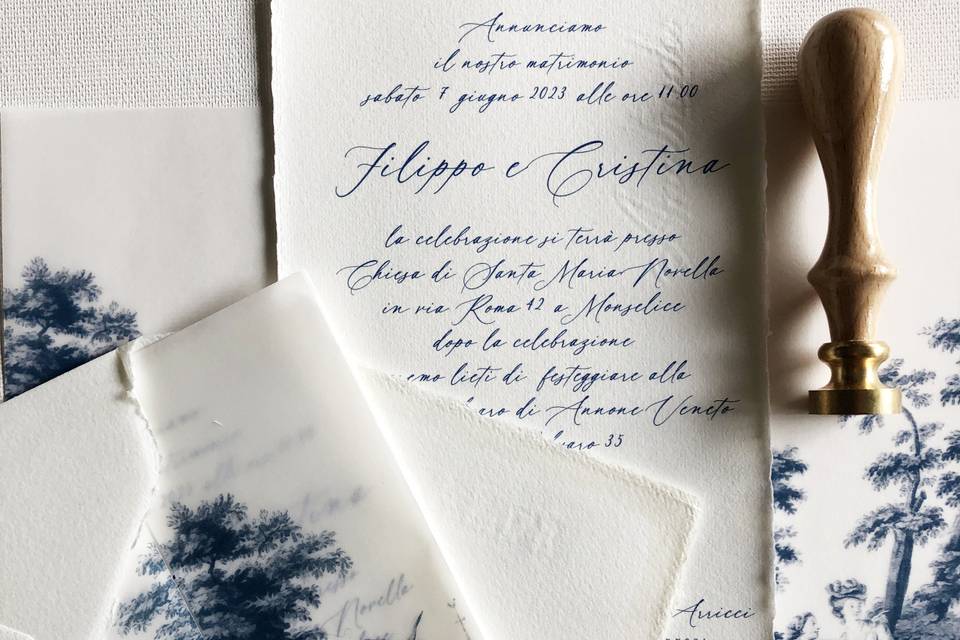 Annunciamo
il nostro matrimonio
sabato 7 giugno 2023 alle ore 11.00
Filippo e Cristina
la celebrazione si terrà presso
Chiesa di Santa Maria Novella
in via Roma 42 a Monselice
dopo la celebrazione
lieti di festeggiare alla
di Annone Veneto
35
Arricci
Novella